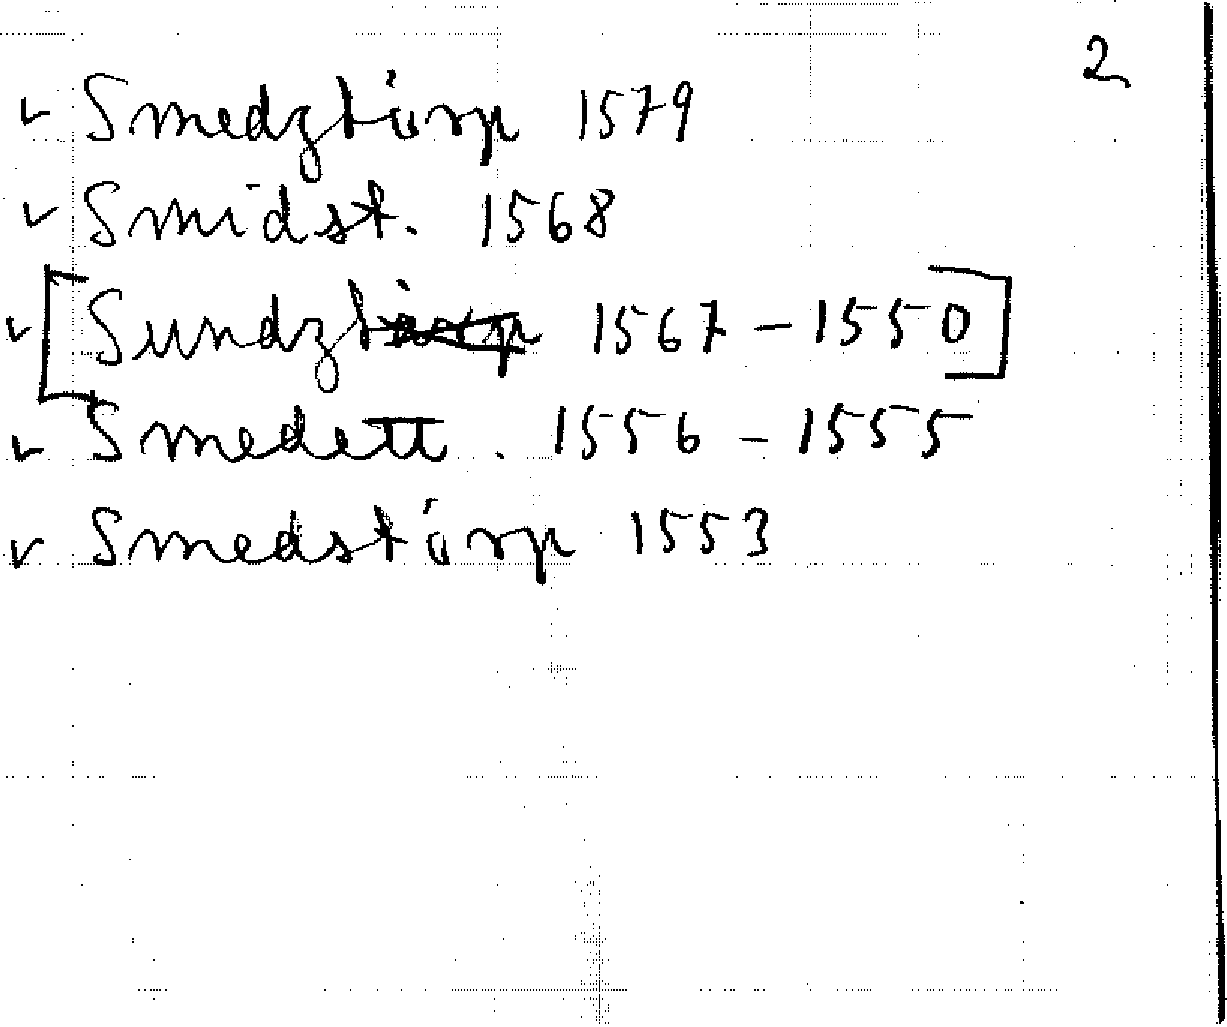 2
✓ Smedztörp 1579
✓ Smidst. 1568
✓ [Sundzt 1567 – 1550]
✓ Smedett . 1556 – 1555
✓ Smedstörp 1553